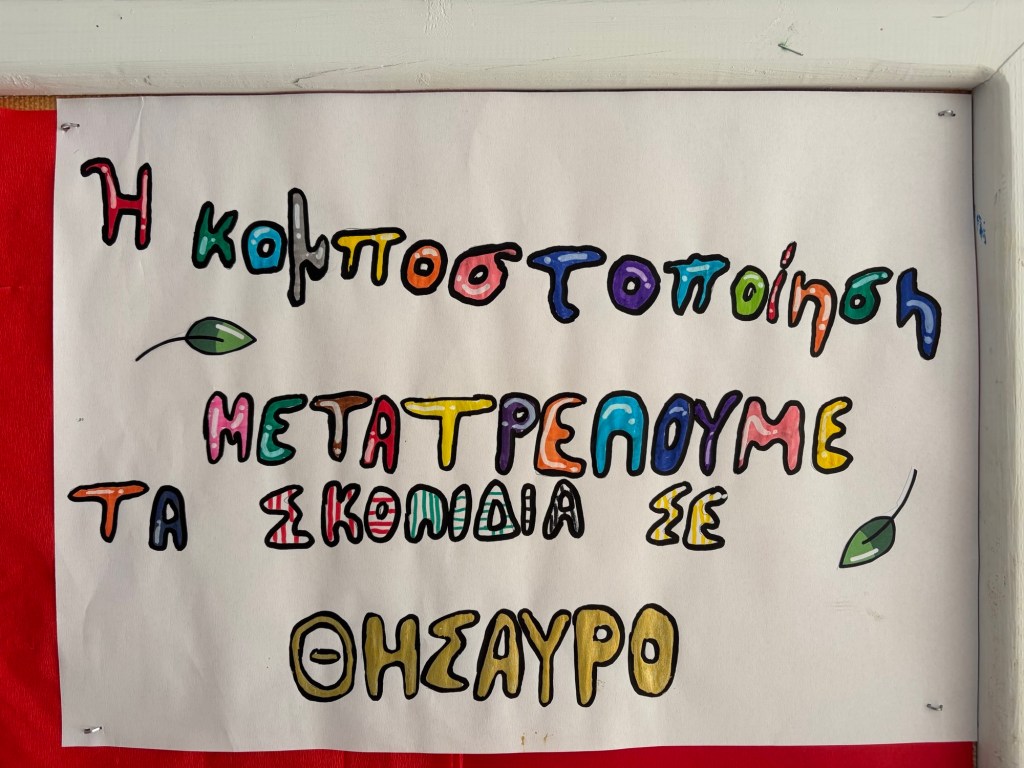 Η κομποστοποίηση
ΜΕΤΑΤΡΕΠΟΥΜΕ
ΤΑ ΣΚΟΠΙΔΙΑ ΣΕ
ΘΗΣΑΥΡΟ